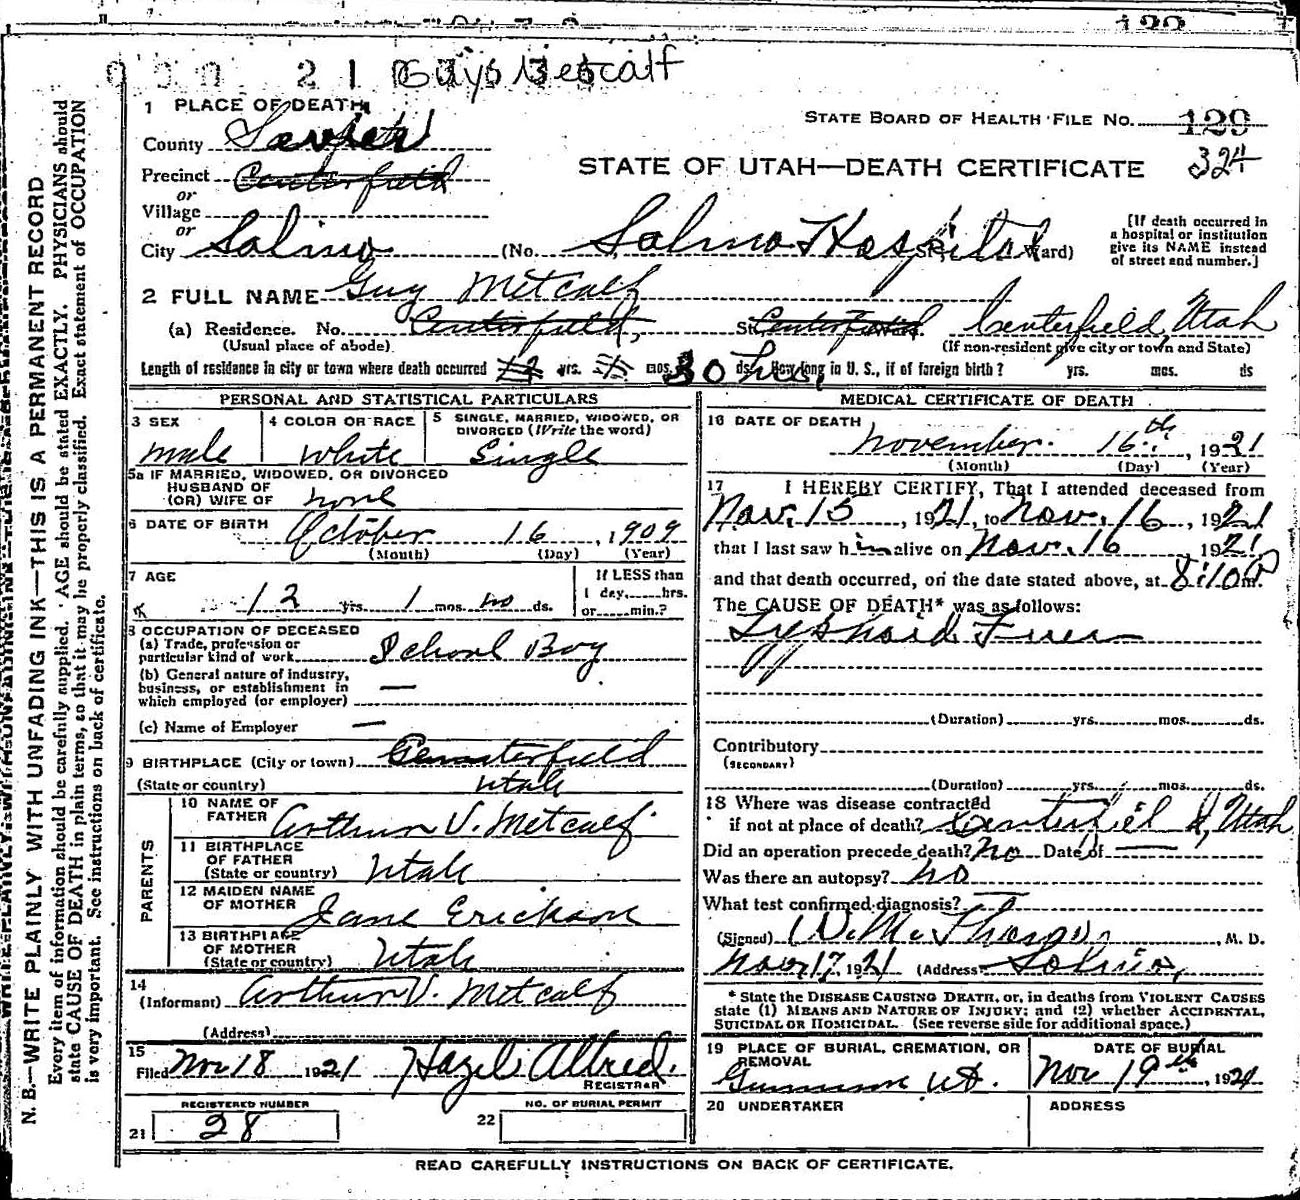 129
21 Guy Metcalf
1 PLACE OF DEATH
County
STATE BOARD OF HEALTH FILE No. 129
324
STATE OF UTAH—DEATH CERTIFICATE
Precinct Centerfield
or
Village
or
City Salina (No. Salina Hospital St. Ward)
[If death occurred in
a hospital or institution
give its NAME instead
of street and number.]
2 FULL NAME Guy Metcalf
(a) Residence. No. Centerfield, St. Centerfield Centerfield, Utah
(Usual place of abode) (If non-resident give city or town and State)
Length of residence in city or town where death occurred 12 yrs. mos. 30 hrs. ds. How long in U. S., if of foreign birth? yrs. mos. ds
PERSONAL AND STATISTICAL PARTICULARS
3 SEX male
4 COLOR OR RACE White
5 SINGLE, MARRIED, WIDOWED, OR
DIVORCED (Write the word)
Single
5a IF MARRIED, WIDOWED, OR DIVORCED
HUSBAND OF
(OR) WIFE OF none
6 DATE OF BIRTH October 16, 1909
(Month) (Day) (Year)
7 AGE
12 yrs. 1 mos. no ds.
If LESS than
1 day, hrs.
or min.?
8 OCCUPATION OF DECEASED
(a) Trade, profession or
particular kind of work School Boy
(b) General nature of industry,
business, or establishment in
which employed (or employer) —
(c) Name of Employer —
9 BIRTHPLACE (City or town) Centerfield
(State or country) Utah
PARENTS
10 NAME OF
FATHER Arthur V. Metcalf
11 BIRTHPLACE
OF FATHER
(State or country) Utah
12 MAIDEN NAME
OF MOTHER Jane Erickson
13 BIRTHPLACE
OF MOTHER
(State or country) Utah
14
(Informant) Arthur V. Metcalf
(Address)
15
Filed Nov 18 1921 Hazel Allred.
REGISTRAR
REGISTERED NUMBER
21 28
NO. OF BURIAL PERMIT
22
MEDICAL CERTIFICATE OF DEATH
16 DATE OF DEATH
November 16th, 1921
(Month) (Day) (Year)
17 I HEREBY CERTIFY, That I attended deceased from
Nov. 15, 1921, to Nov. 16, 1921
that I last saw him alive on Nov. 16, 1921
and that death occurred, on the date stated above, at 8:10 P m.
The CAUSE OF DEATH* was as follows:
Typhoid Fever
(Duration) yrs. mos. ds.
Contributory
(SECONDARY)
(Duration) yrs. mos. ds.
18 Where was disease contracted
if not at place of death? Centerfield, Utah
Did an operation precede death? no Date of —
Was there an autopsy? no
What test confirmed diagnosis? —
(Signed) M. D.
Nov 17, 1921 (Address) Salina,
* State the DISEASE CAUSING DEATH, or, in deaths from VIOLENT CAUSES
state (1) MEANS AND NATURE OF INJURY; and (2) whether ACCIDENTAL,
SUICIDAL OR HOMICIDAL. (See reverse side for additional space.)
19 PLACE OF BURIAL, CREMATION, OR
REMOVAL
Gunnison Ut.
DATE OF BURIAL
Nov 19th, 1921
20 UNDERTAKER
ADDRESS
READ CAREFULLY INSTRUCTIONS ON BACK OF CERTIFICATE.
N. B.—WRITE PLAINLY WITH UNFADING INK—THIS IS A PERMANENT RECORD
Every item of information should be carefully supplied. AGE should be stated EXACTLY. PHYSICIANS should
state CAUSE OF DEATH in plain terms, so that it may be properly classified. Exact statement of OCCUPATION
is very important. See instructions on back of certificate.